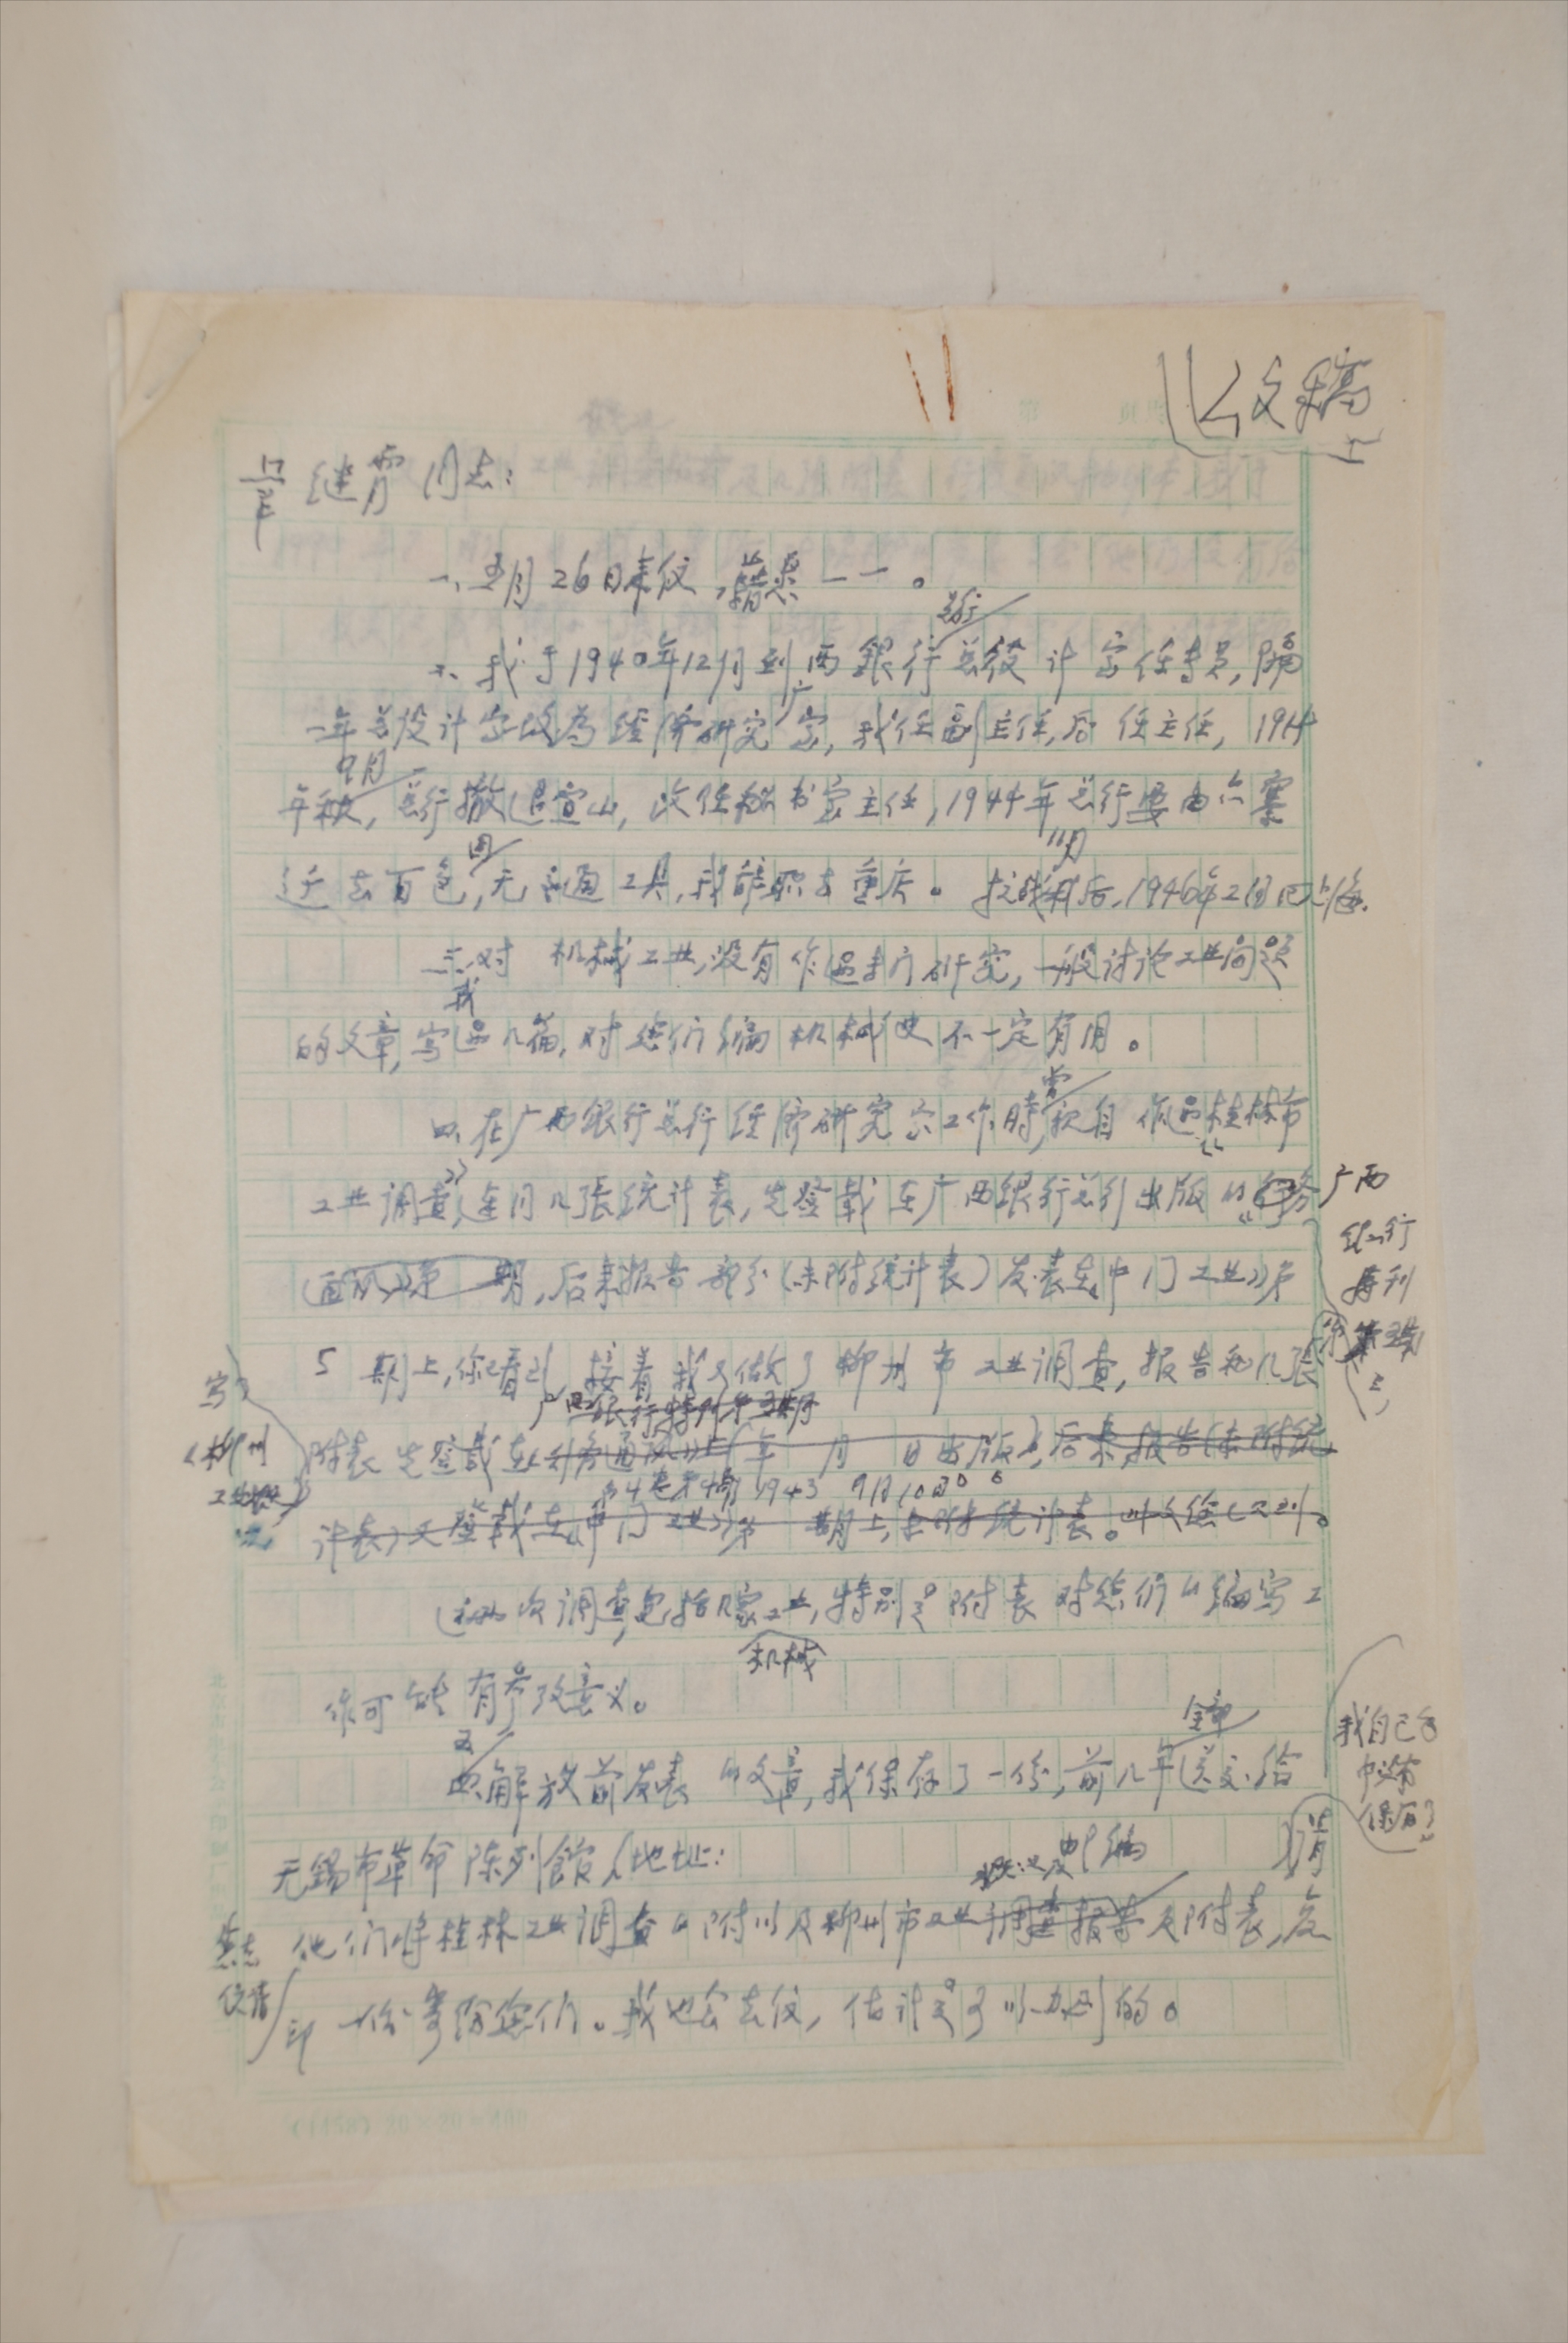 改稿
继霄同志：
一、五月26日来信，藉悉一一。
二、我于1940年12月到广西银行总行总设计室任专员，隔
一年总设计室改为经济研究室，我任副主任，后任主任，1944
年秋，9月总行撤退宜山，改任秘书室主任，1944年11月总行要由六寨
迁去百色，因无交通工具，我辞职去重庆。抗战胜利后，1946年2月回上海。
三、我对机械工业，没有作过专门研究，一般讨论工业问题
的文章，写过几篇，对您们编机械史不一定有用。
四、在广西银行总行经济研究室工作时，曾亲自作过《桂林市
工业调查》，连同几张统计表，先登载在广西银行总行出版的《行务
通讯》第 期，后来报告部分（未附统计表）发表在《中国工业》第
广西
银行
季刊
5期上，你已看到，接着我又做了柳州市工业调查，报告和几张
写了
《柳州
工业
广西银行季刊第 期
附表先登载在《行务通讯》上（ 年 月 日出版），后来报告（未附统
第4卷第4期 1943 9月10日
计表）又登载在《中国工业》第 期上，未附统计表。
这两次调查，包括几家机械工业，特别是附表对您们的编写工
作可能有参考意义。
五、解放前发表的文章，我保存了一份，前几年全部送交给
我自己
中没有
保留了
无锡市革命陈列馆（地址： 邮编 ）请
他们将桂林工业调查的附 以及柳州市工业调查报告及附表，复
去信请
印一份寄给您们。我也会去信，估计是可以办到的。
(1458) 20×20=400